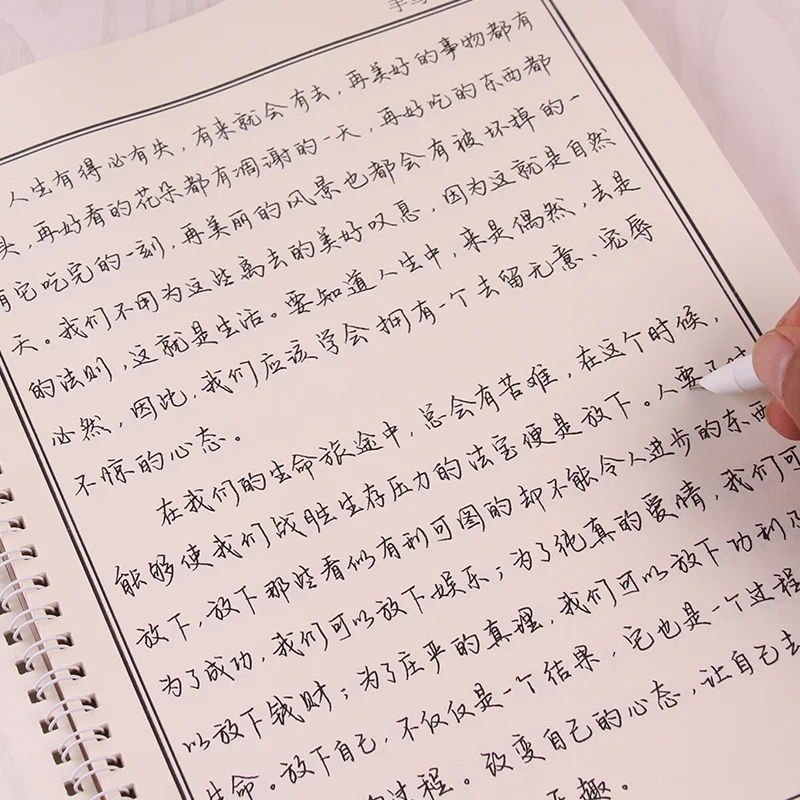 手写
人生有得必有失，有来就会有去，再美好的事物都有
头，再好看的花朵都有凋谢的一天，再好吃的东西都
有它吃完的一刻，再美丽的风景也都会有被坏掉的一
天。我们不用为这些离去的美好叹息，因为这就是自然
的法则，这就是生活。要知道人生中，来是偶然，去是
必然，因此，我们应该学会拥有一个去留无意、宠辱
不惊的心态。
在我们的生命旅途中，总会有苦难，在这个时候，
能够使我们战胜生存压力的法宝便是放下。人要
放下，放下那些看似有利可图的却不能令人进步的东西
为了成功，我们可以放下娱乐；为了纯真的爱情，我们可
以放下钱财；为了庄严的真理，我们可以放下功利
生命。放下自己，不仅仅是一个结果，它也是一个过程
的过程。改变自己的心态，让自己去
趣。